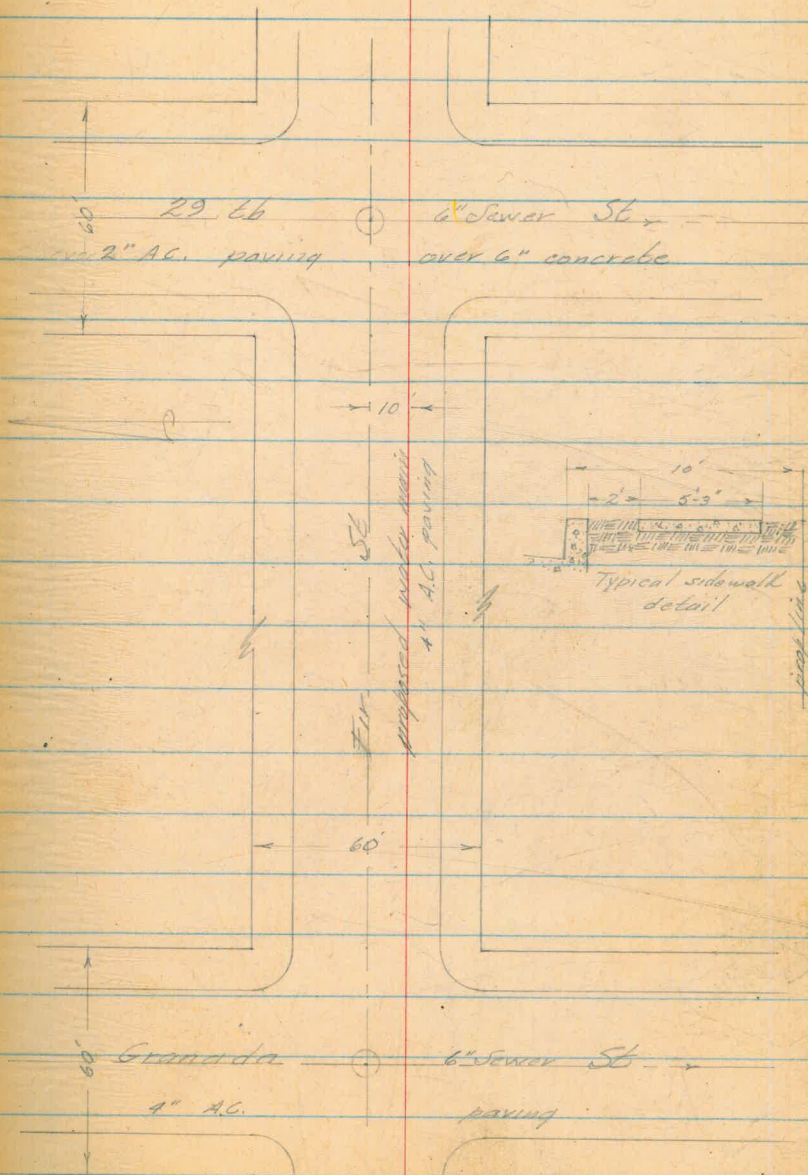 60'
29 th 6" Sewer St.
2" A.C. paving over 6" concrete
10'
10'
2' 5'-3"
Typical sidewalk
detail
prop line
Fir St
proposed water main
4" A.C. paving
60'
60'
Granada 6" Sewer St
4" A.C. paving